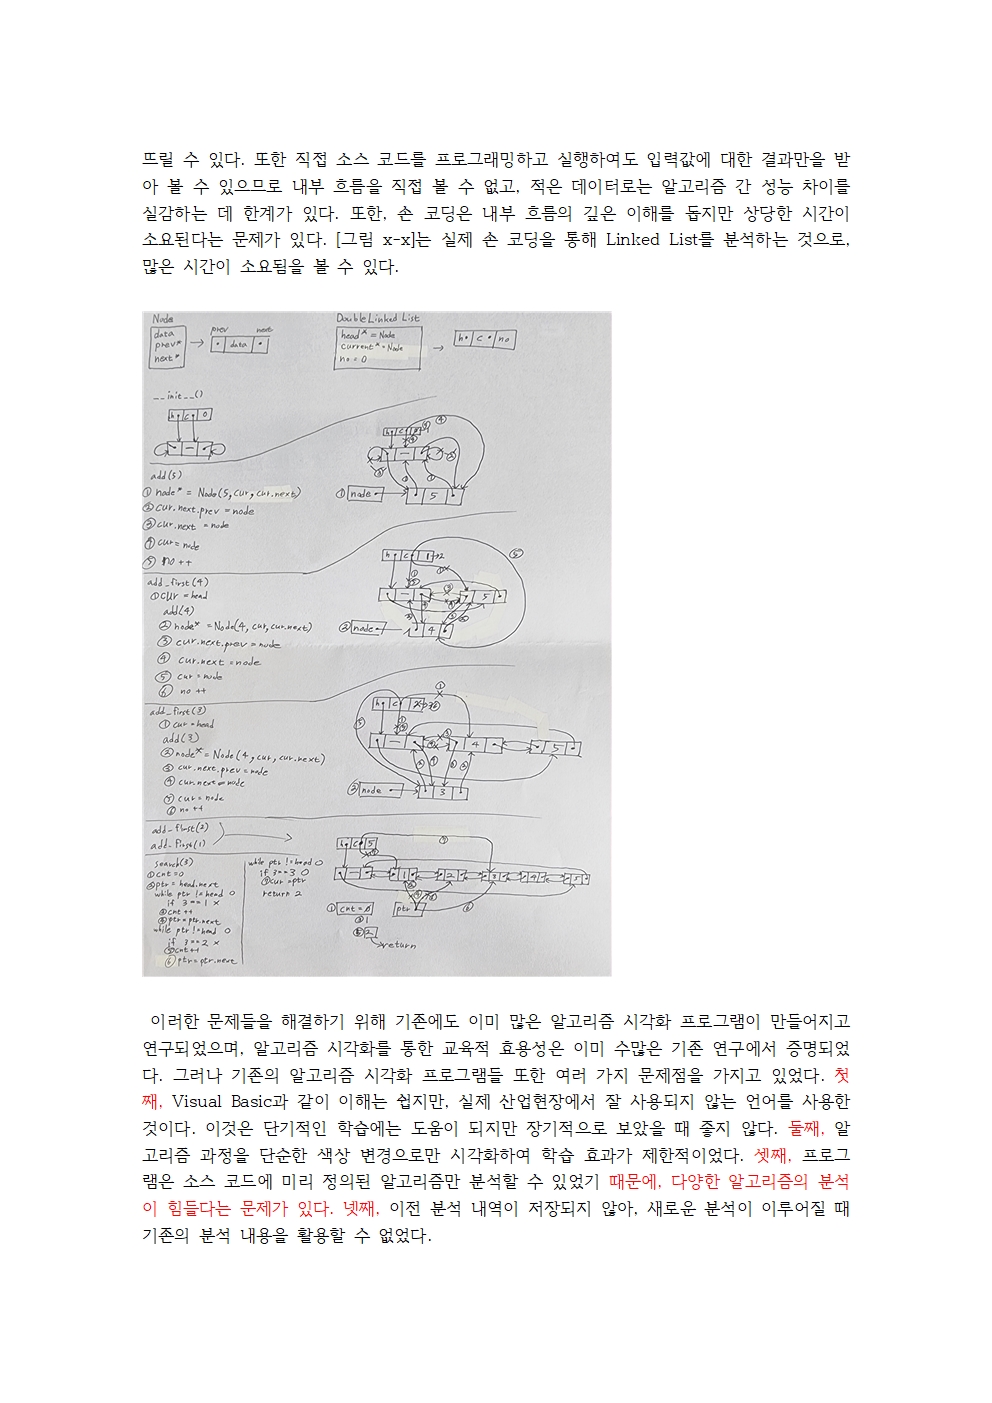 뜨릴 수 있다. 또한 직접 소스 코드를 프로그래밍하고 실행하여도 입력값에 대한 결과만을 받
아 볼 수 있으므로 내부 흐름을 직접 볼 수 없고, 적은 데이터로는 알고리즘 간 성능 차이를
실감하는 데 한계가 있다. 또한, 손 코딩은 내부 흐름의 깊은 이해를 돕지만 상당한 시간이
소요된다는 문제가 있다. [그림 x-x]는 실제 손 코딩을 통해 Linked List를 분석하는 것으로,
많은 시간이 소요됨을 볼 수 있다.
Node
data
prev*
next*
prev next
data
Double Linked List
head* = Node
current* = Node
no = 0
h c no
__init__()
h c 0
add(5)
① node* = Node(5, cur, cur.next)
② cur.next.prev = node
③ cur.next = node
④ cur = node
⑤ no ++
① node
5
add_first(4)
① cur = head
add(4)
② node* = Node(4, cur, cur.next)
③ cur.next.prev = node
④ cur.next = node
⑤ cur = node
⑥ no ++
h c 1→2
5
② node
4
add_first(3)
① cur = head
add(3)
② node* = Node(4, cur, cur.next)
③ cur.next.prev = node
④ cur.next = node
⑤ cur = node
⑥ no ++
h c
4 5
② node
3
add_first(2)
add_first(1)
h c 5
1 2 3 4 5
search(3)
① cnt = 0
② ptr = head.next
while ptr != head O
if 3 == 1 x
③ cnt ++
④ ptr = ptr.next
while ptr != head O
if 3 == 2 x
⑤ cnt ++
⑥ ptr = ptr.next
while ptr != head O
if 3 == 3 O
⑦ cur = ptr
return 2
① cnt = 0
ptr
③ 1
⑤ 2
→return
이러한 문제들을 해결하기 위해 기존에도 이미 많은 알고리즘 시각화 프로그램이 만들어지고
연구되었으며, 알고리즘 시각화를 통한 교육적 효용성은 이미 수많은 기존 연구에서 증명되었
다. 그러나 기존의 알고리즘 시각화 프로그램들 또한 여러 가지 문제점을 가지고 있었다. 첫
째, Visual Basic과 같이 이해는 쉽지만, 실제 산업현장에서 잘 사용되지 않는 언어를 사용한
것이다. 이것은 단기적인 학습에는 도움이 되지만 장기적으로 보았을 때 좋지 않다. 둘째, 알
고리즘 과정을 단순한 색상 변경으로만 시각화하여 학습 효과가 제한적이었다. 셋째, 프로그
램은 소스 코드에 미리 정의된 알고리즘만 분석할 수 있었기 때문에, 다양한 알고리즘의 분석
이 힘들다는 문제가 있다. 넷째, 이전 분석 내역이 저장되지 않아, 새로운 분석이 이루어질 때
기존의 분석 내용을 활용할 수 없었다.